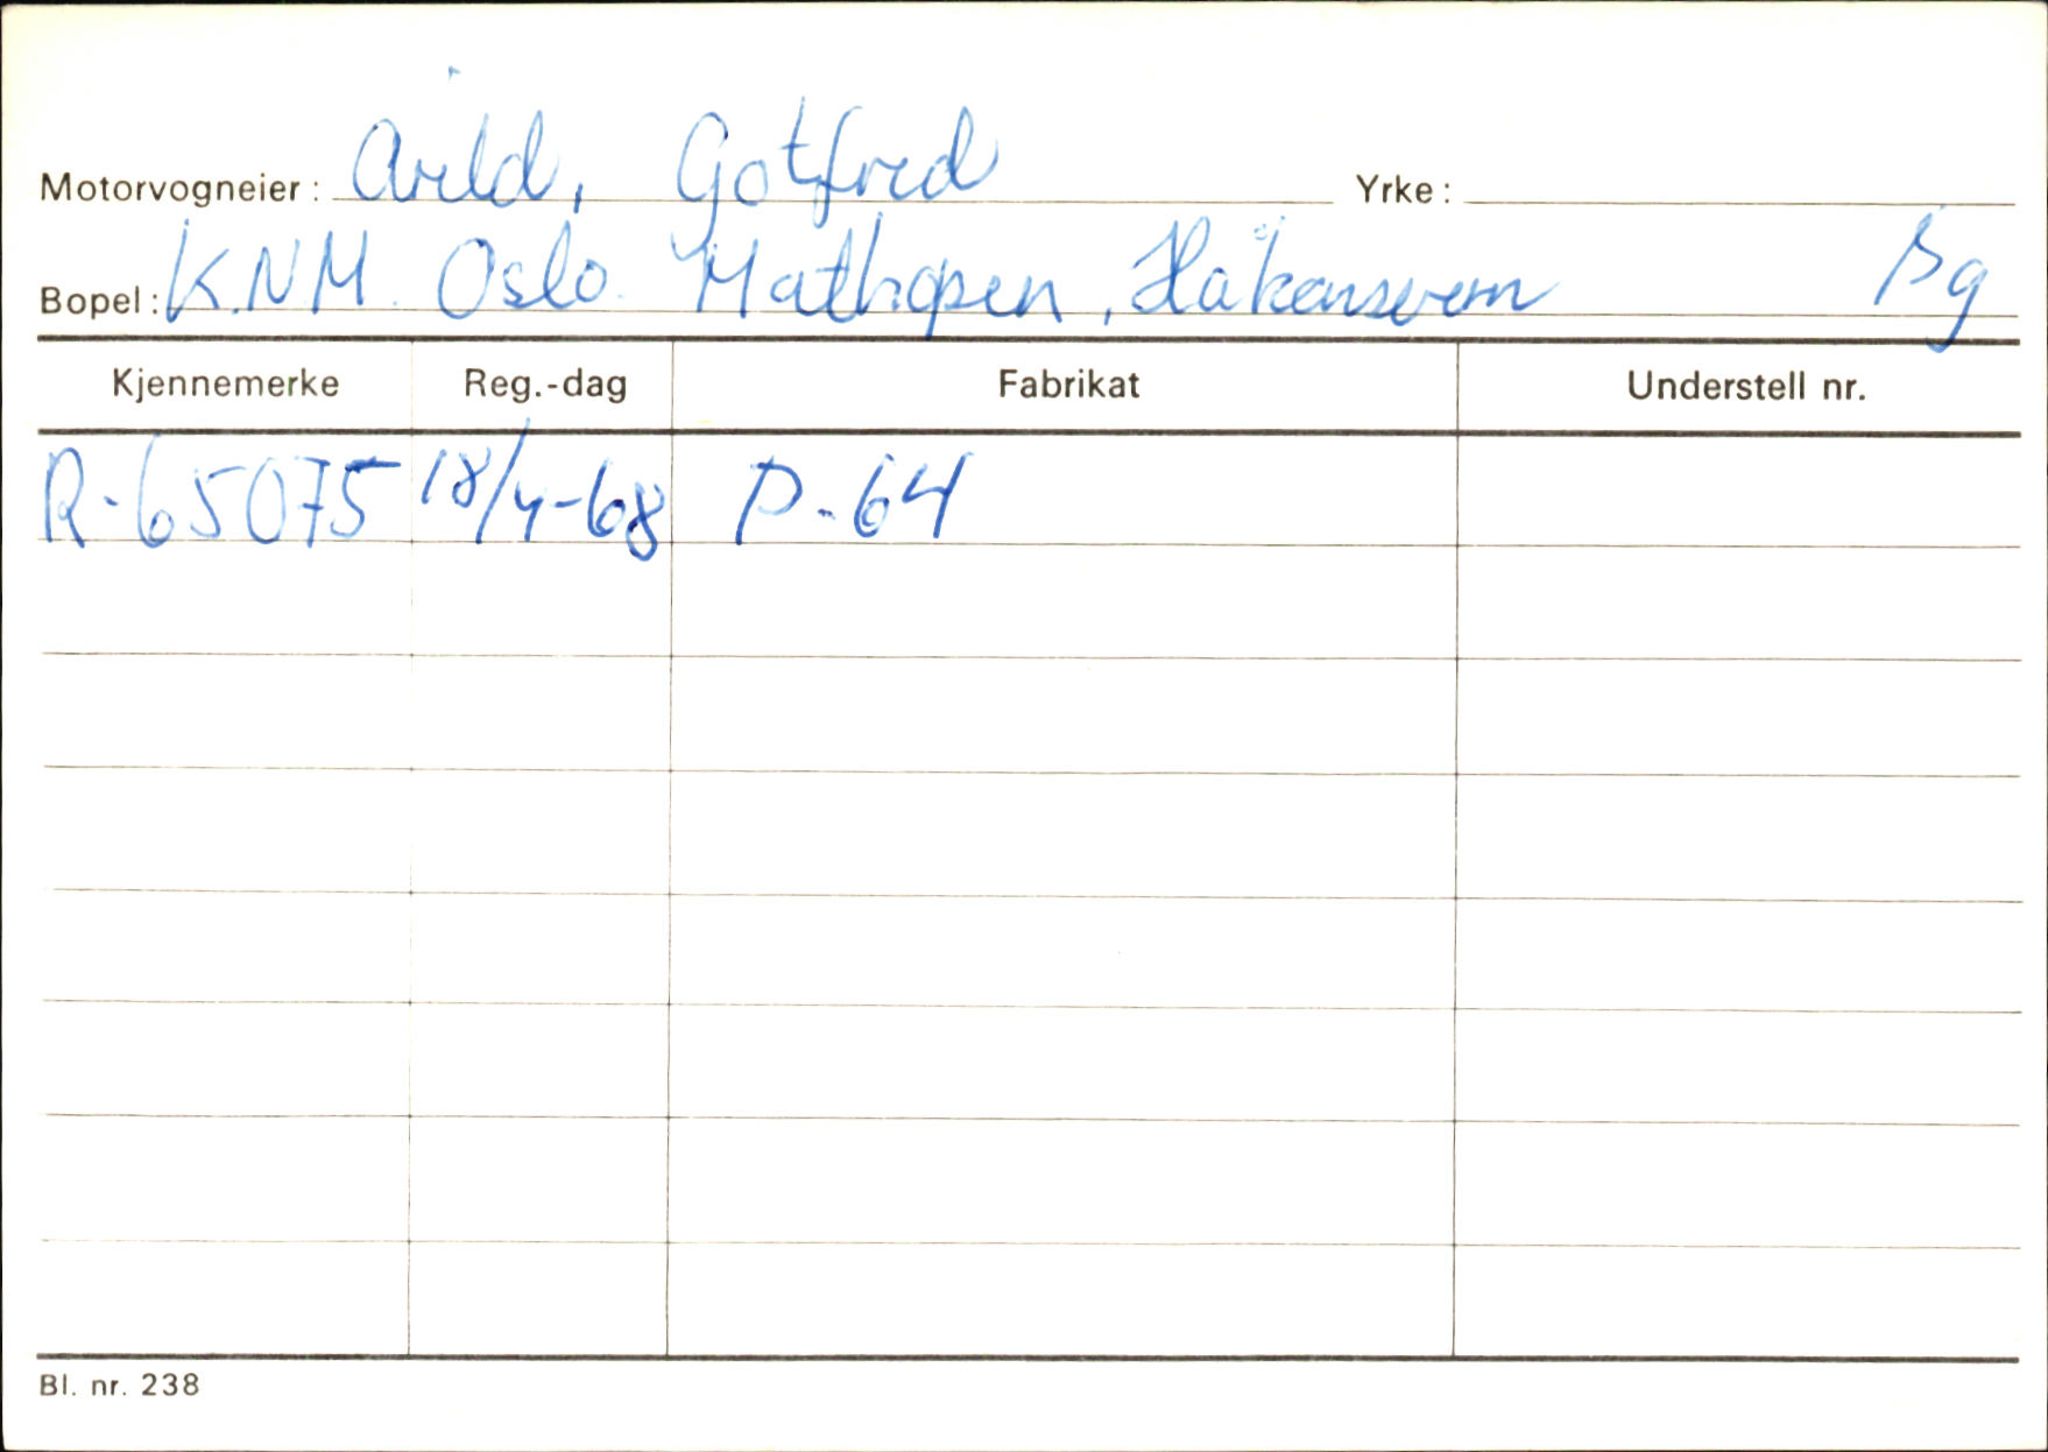 Motorvogneier: Arild, Gotfred Yrke:
Bopel: K.N.M. Oslo. Mathopen, Håkonsvern Bg
Kjennemerke Reg.-dag Fabrikat Understell nr.
R-65075 18/4-68 P-64
Bl. nr. 238